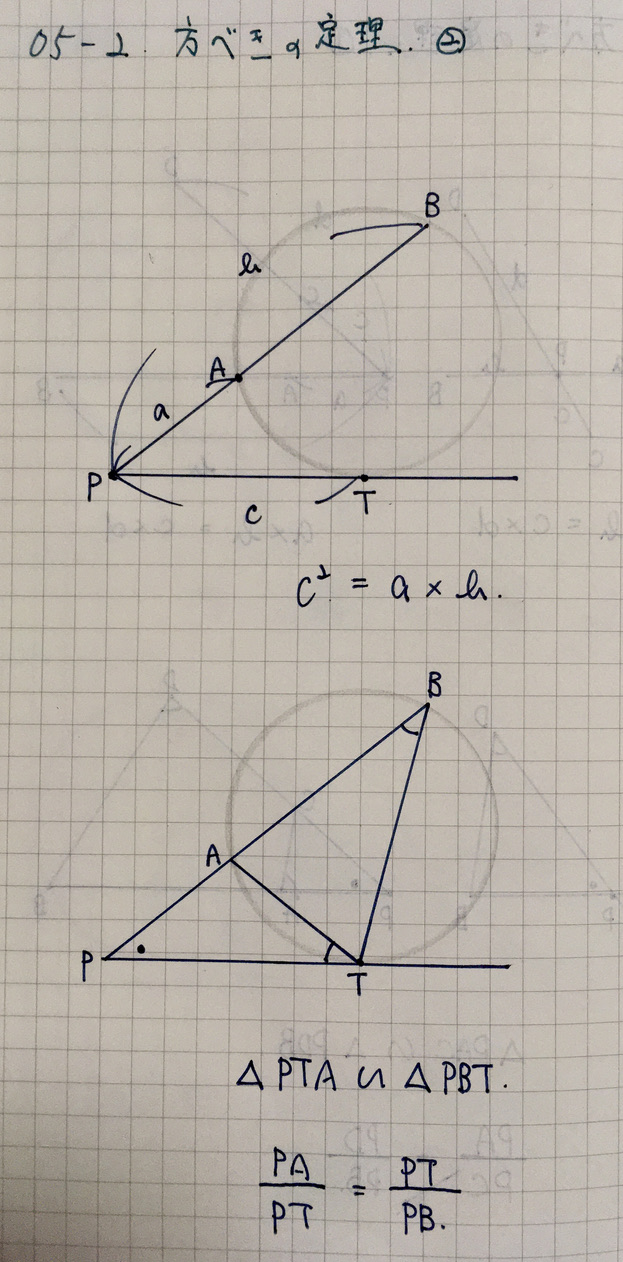 05-2. 方べきの定理. ②
B
b
A
a
P
c
T
c² = a × b.
B
A
P
T
△PTA ∽ △PBT.
PA/PT = PT/PB.